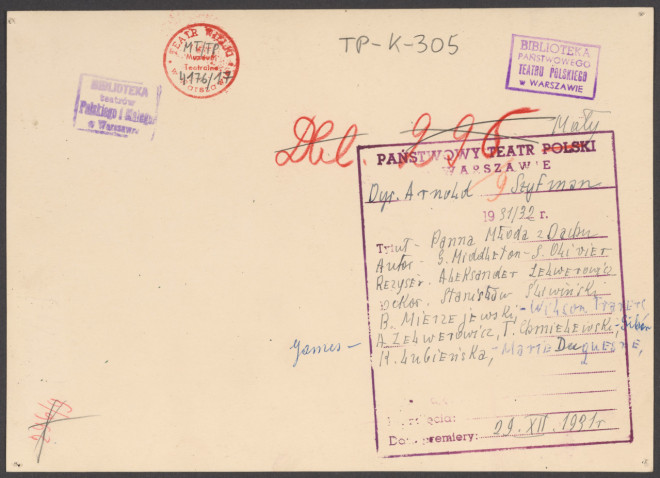 TP-K-305
TEATR WIELKI
MT/TP
Muzeum
Teatralne
4176/17
w Warszawie
BIBLIOTEKA
PAŃSTWOWEGO
TEATRU POLSKIEGO
w WARSZAWIE
BIBLIOTEKA
teatrów
Polskiego i Małego
w Warszawie
Dbl. 226
Mały
PAŃSTWOWY TEATR POLSKI
WARSZAWIE
9
Dyr. Arnold Szyfman
1931/32 r.
Tytuł - Panna Młoda z Dachu
Autor - G. Middleton - S. Olivier
Reżyser - Aleksander Zelwerowicz
Dekor. Stanisław Śliwiński
B. Mierzejewski, - Wilson Travers
A. Zelwerowicz, T. Chmielewski, -
James - H. Łubieńska, - Marie Duquesne,
Data premiery: 29. XII. 1931 r